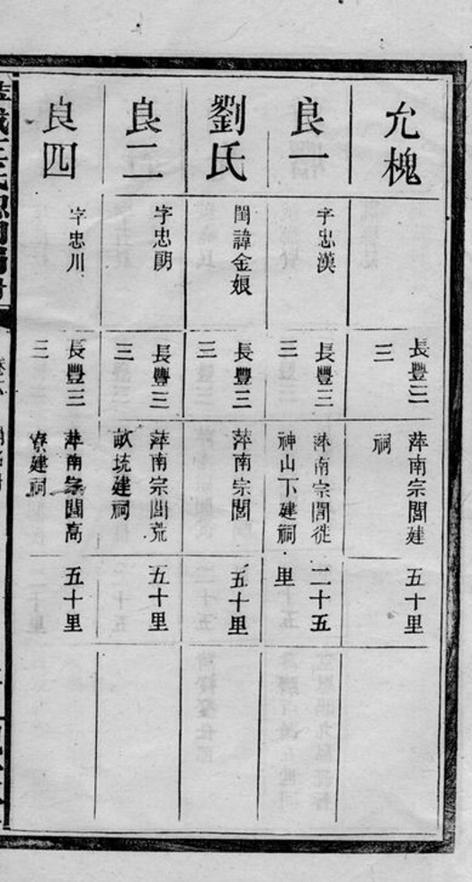 允槐
長豐三
三
萍南宗閣建
祠
五十里
良一
字忠漢
長豐三
三
萍南宗閣徙
神山下建祠
二十五
里
劉氏
閨諱金娘
長豐三
三
萍南宗閣
五十里
良二
字忠朗
長豐三
三
萍南宗閣荒
畝坑建祠
五十里
良四
字忠川
長豐三
三
萍南宗閣高
寮建祠
五十里